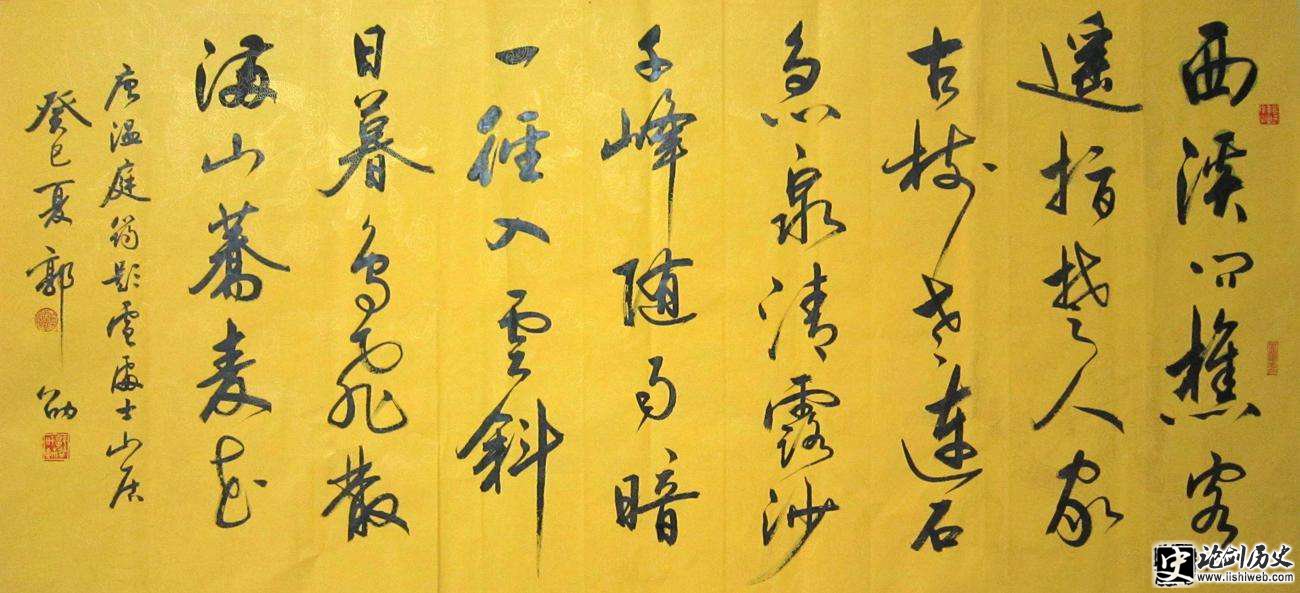 西溪问樵客
遥指楚人家
古树老连石
急泉清露沙
千峰随雨暗
一径入雲斜
日暮鸟飛散
满山蕎麦花
唐温庭筠题盧處士山居
癸巳夏郭
史 论剑历史
www.lishiweb.com